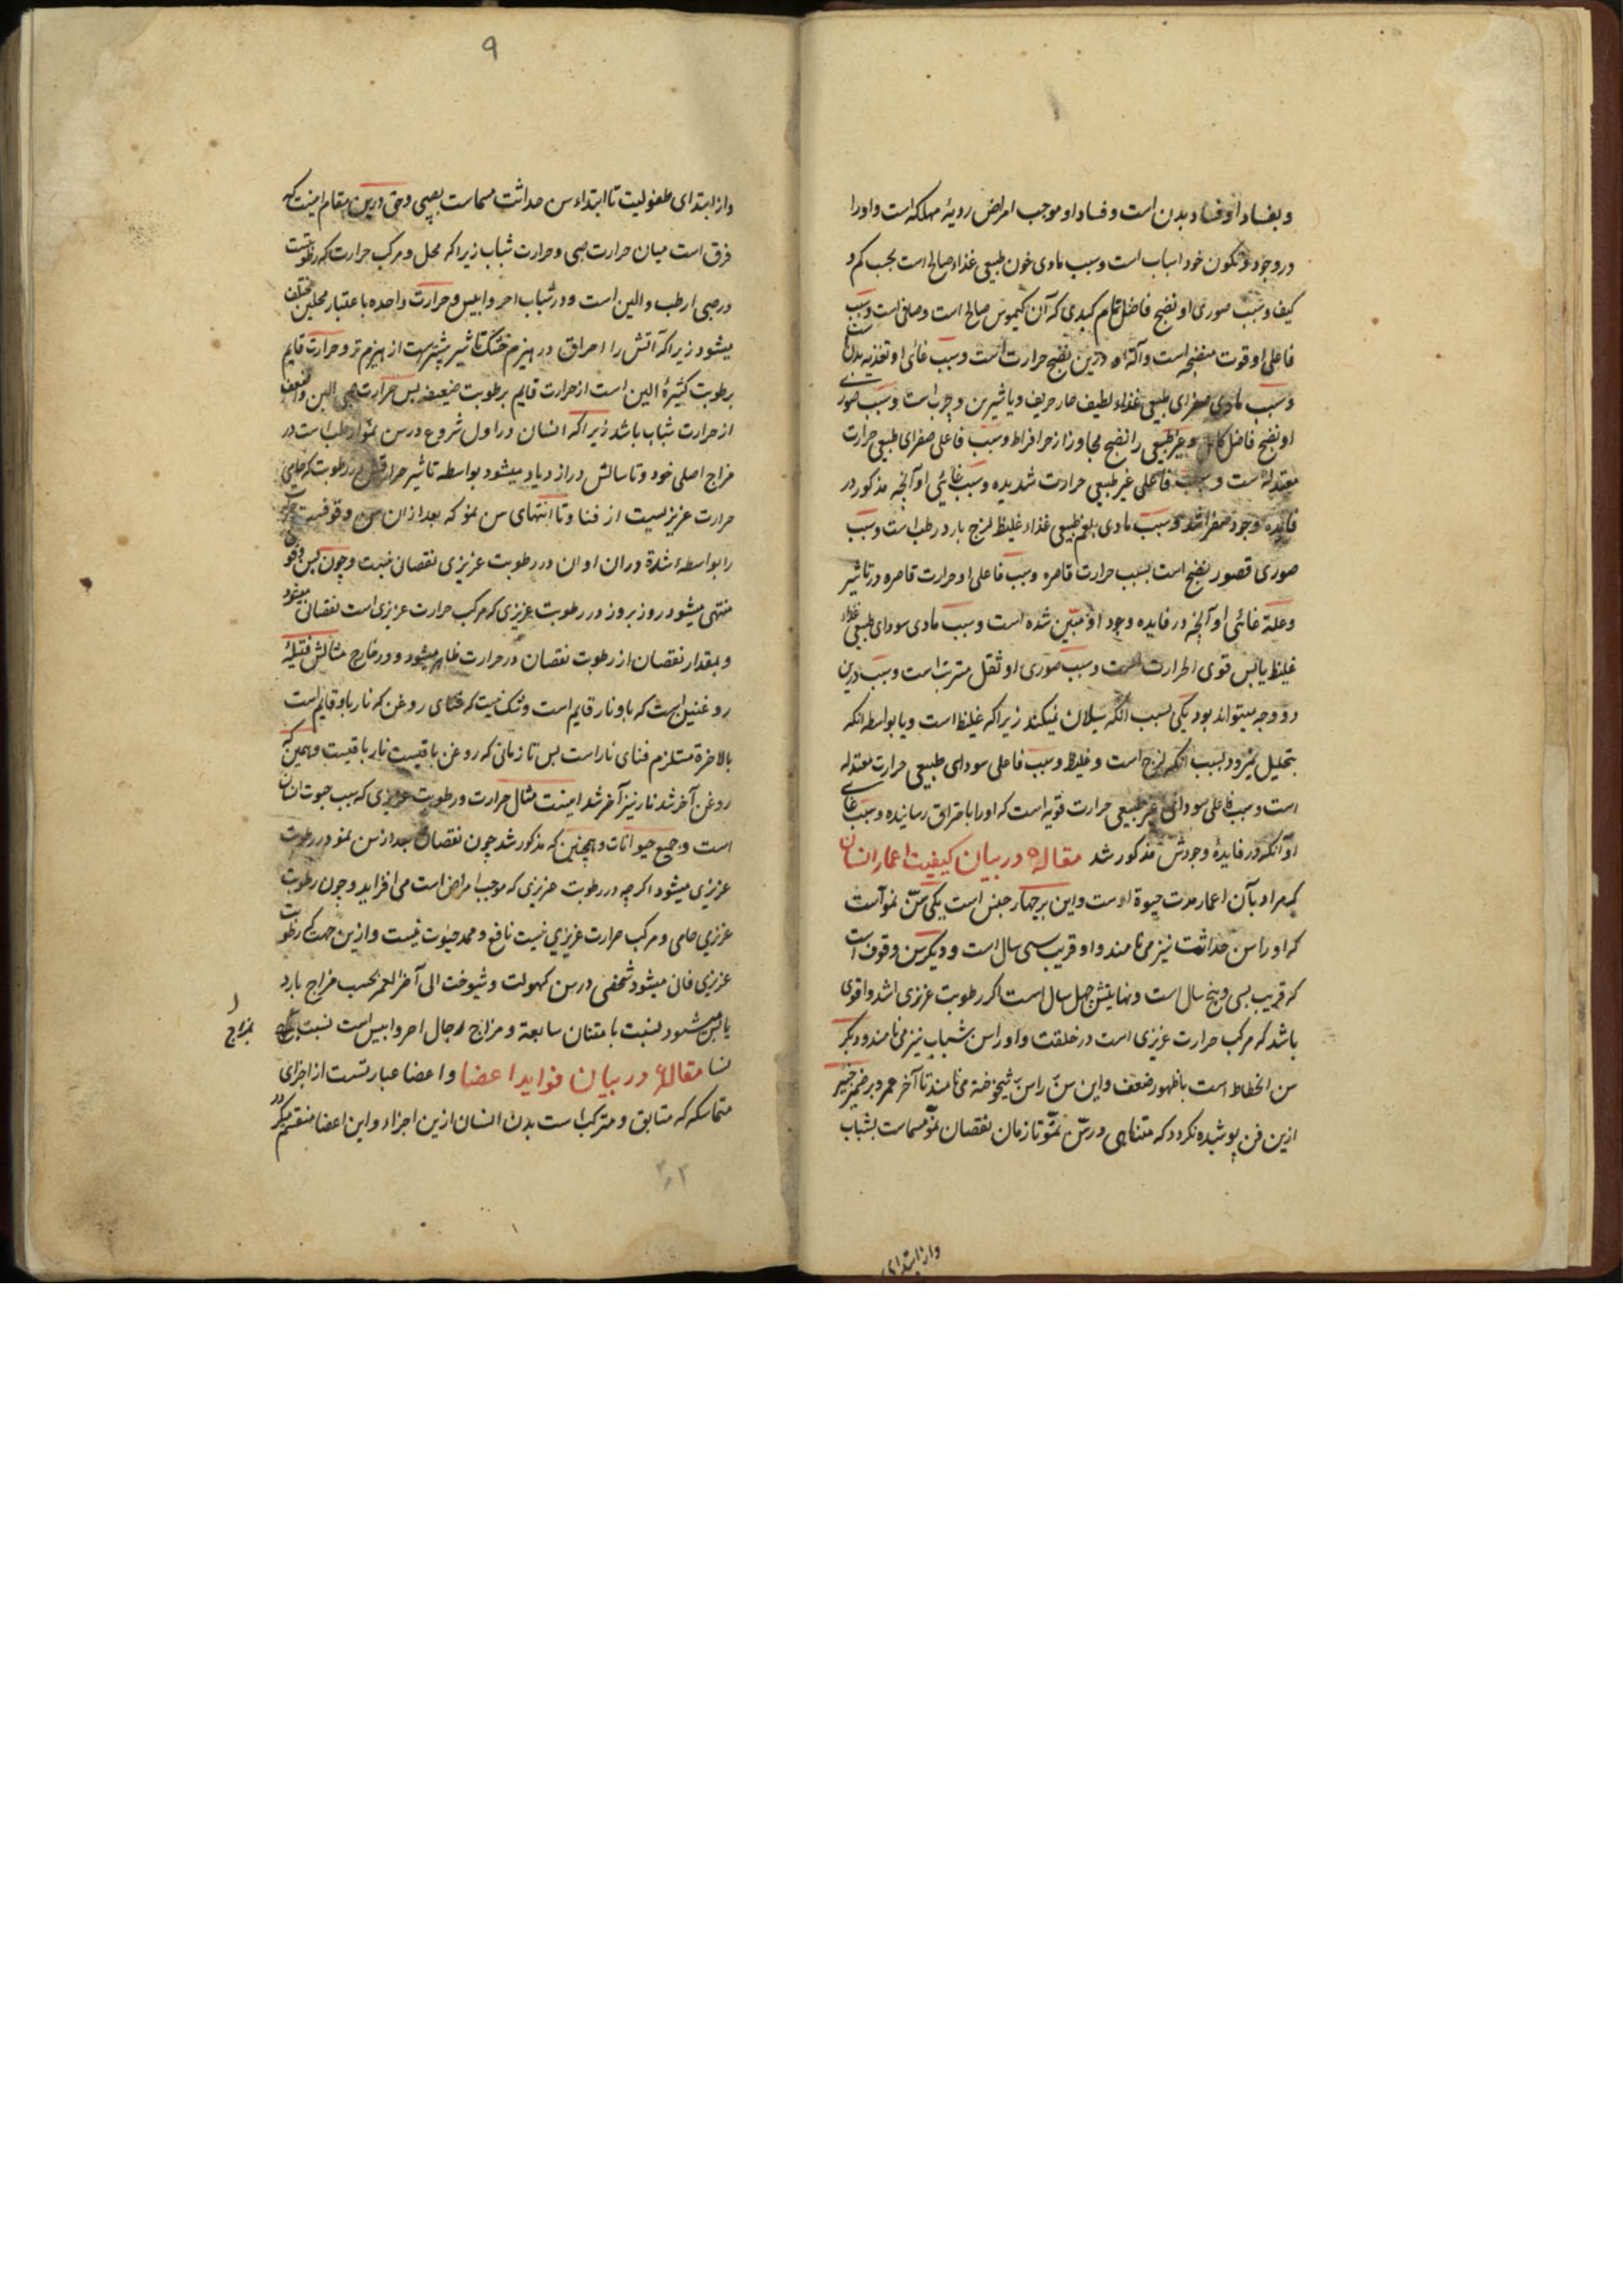 و بفساد او فساد بدن است و فساد او موجب امراض رویهٔ مهلکه است و او را
در وجود و تکون خود اسباب است و سبب مادی خون طبیعی غذاء صالح است بحسب کم و
کیف و سبب صوری او نضج فاضل تام کبدی که آن کیموس صالح است و صافی است و سبب
فاعلی او قوت منضجه است و آلة او درین نضج حرارت است و سبب غائی او تغذیه بدن است
و سبب مادی صفرای طبیعی غذاء لطیف حار حریف و یا شیرین و چرب است و سبب صوری
او نضج فاضل کامل و غیر طبیعی را نضج مجاوز از حد افراط و سبب فاعلی صفرای طبیعی حرارت
معتدله است و سبب فاعلی غیر طبیعی حرارت شدیده و سبب غائی او آنچه مذکور در
فایده وجود صفرا شد و سبب مادی بلغم طبیعی غذاء غلیظ لزج بارد رطب است و سبب
صوری قصور نضج است بسبب حرارت قاصره و سبب فاعلی او حرارت قاصره در تاثیر
و علة غائی او آنچه در فایده وجود او مبین شده است و سبب مادی سودای طبیعی غذاء
غلیظ یابس قوی الحرارت است و سبب صوری او ثفل مترسب است و سبب درین
دو وجه میتواند بود یکی بسبب آنکه سیلان نمیکند زیرا که غلیظ است و یا بواسطه آنکه
بتحلیل نمیرود بسبب آنکه لزج است و غلیظ و سبب فاعلی سودای طبیعی حرارت معتدله
است و سبب فاعلی سودای غیر طبیعی حرارت قویه است که او را باحتراق رسانیده و سبب غائی
او آنکه در فایدهٔ وجودش مذکور شد مقاله ۵ در بیان کیفیت اعمار انسان
که مراد بآن اعمار مدت حیوة اوست و این بر چهار جنس است یکی سن نمو است
که او را سن حداثت نیز می نامند و او قریب سی سال است و دیگر سن وقوف است
که قریب بسی و پنج سال است و نهایتش چهل سال است اگر رطوبت عزیزی اشد و اقوی
باشد که مرکب حرارت عزیزی است در خلقت و او را سن شباب نیز می نامند و دیگر
سن انحطاط است با ظهور ضعف و این سن را سن شیخوخة می نامند تا آخر عمر و بر ضمیر خبیر
ازین فن پوشیده نکردد که متناهی در سن نمو تا زمان نقصان نمو مسماست بشباب
وازابتدای
۹
و از ابتدای طفولیت تا ابتداء سن حداثت مسماست بصبی و حق درین مقام اینست که
فرق است میان حرارت صبی و حرارت شباب زیرا که محل و مرکب حرارت که رطوبتست
در صبی ارطب و الین است و در شباب احر و ایبس و حرارت واحده باعتبار محلین مختلف
میشود زیرا که آتش را احراق در هیزم خشک تاثیر بیشترست از هیزم تر و حرارت قایم
برطوبت کثیرهٔ الین است از حرارت قایم برطوبت ضعیفه پس حرارت صبی الین و اضعف
از حرارت شباب باشد زیرا که انسان در اول شروع در سن نمو ارطب است در
مزاج اصلی خود و تا سالش در ازدیاد میشود بواسطه تاثیر حرارتش در رطوبت که حامی
حرارت عزیزیست از فنا و تا انتهای سن نمو که بعد از ان سن وقوفست حرارت
را بواسطهٔ شدة دران اوان در رطوبت عزیزی نقصانی نیست و چون سن وقوف
منتهی میشود روز بروز در رطوبت عزیزی که مرکب حرارت عزیزی است نقصانی میشود
و بمقدار نقصان از رطوبت نقصان در حرارت ظاهر میشود و در خارج مثالش فتیلهٔ
روغنین است که باو نار قایم است و شک نیست که فنای روغن که نار باو قایم است
بالاخرة مستلزم فنای نار است پس تا زمانی که روغن باقیست نار باقیست و همین که
روغن آخر شد نار نیز آخر شد اینست مثال حرارت و رطوبت عزیزی که سبب حیوت انسان
است و جمیع حیوانات و همچنین که مذکور شد چون نقصان بعد از سن نمو در رطوبت
عزیزی میشود اگر چه در رطوبت غریزی که موجب امراض است می افزاید و چون رطوبت
عزیزی حامی و مرکب حرارت عزیزی نیست نافع و ممد حیوت نیست و ازین جهت که رطوبت
عزیزی فان میشود شخصی در سن کهولت و شیوخت الی آخر العمر بحسب مزاج بارد
یابس میشود نسبت باسنان سابعة و مزاج رجال احر و ایبس است نسبت
بمزاج
نسا مقاله ۶ در بیان فواید اعضا و اعضا عبارتست از اجزای
متماسکه که متابق و مترکب است بدن انسان ازین اجزاء و این اعضا منقسم میکردد